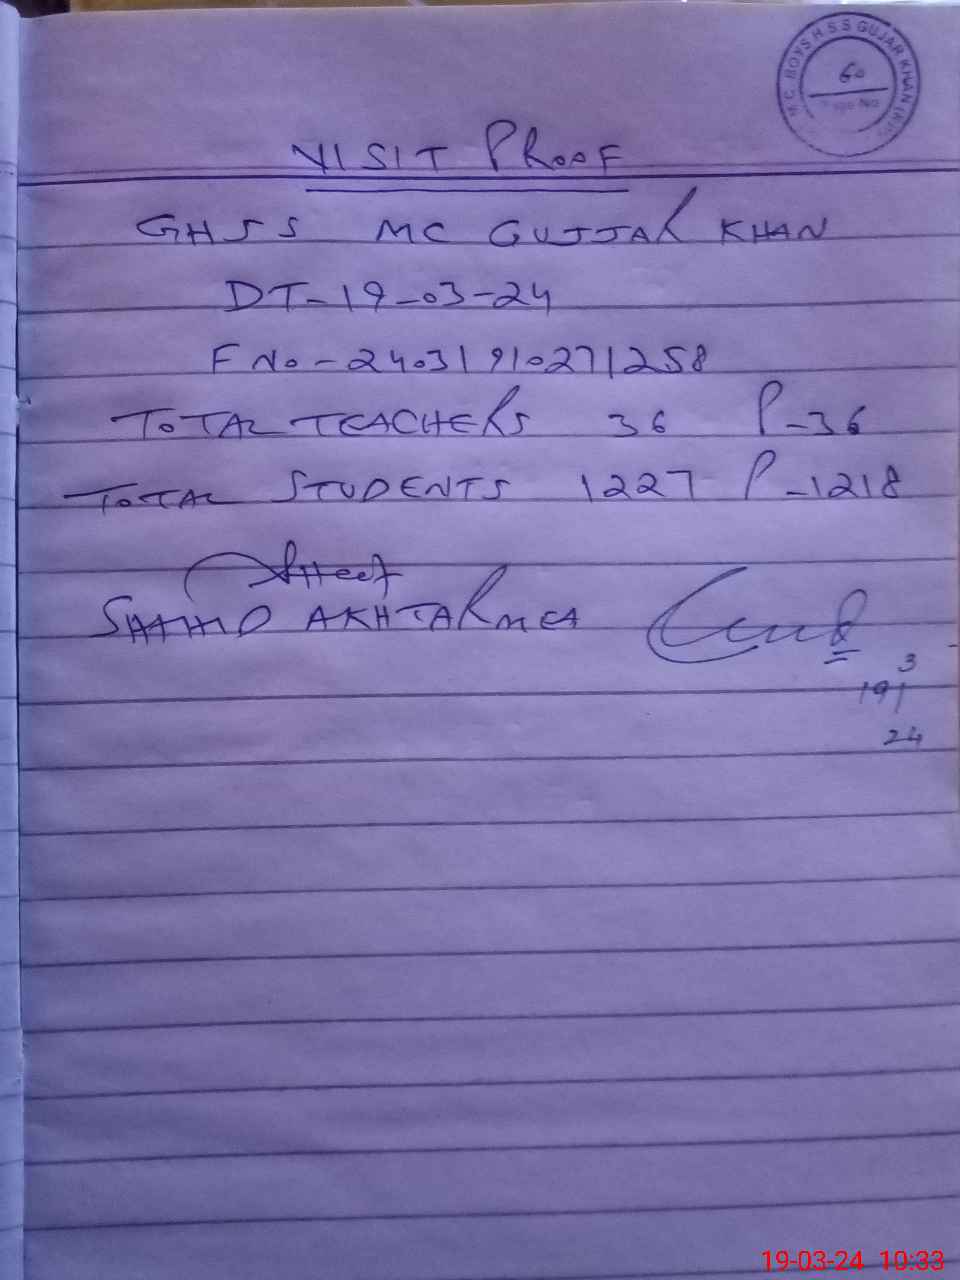 M.C BOYS H S S GUJAR KHAN
60
Page No
VISIT PROOF
GHSS MC GUJJAR KHAN
DT-19-03-24
F No-2403191027 1258
TOTAL TEACHERS 36 P-36
TOTAL STUDENTS 1227 P-1218
SHAHID AKHTAR MEA
19/3
24
19-03-24 10:33